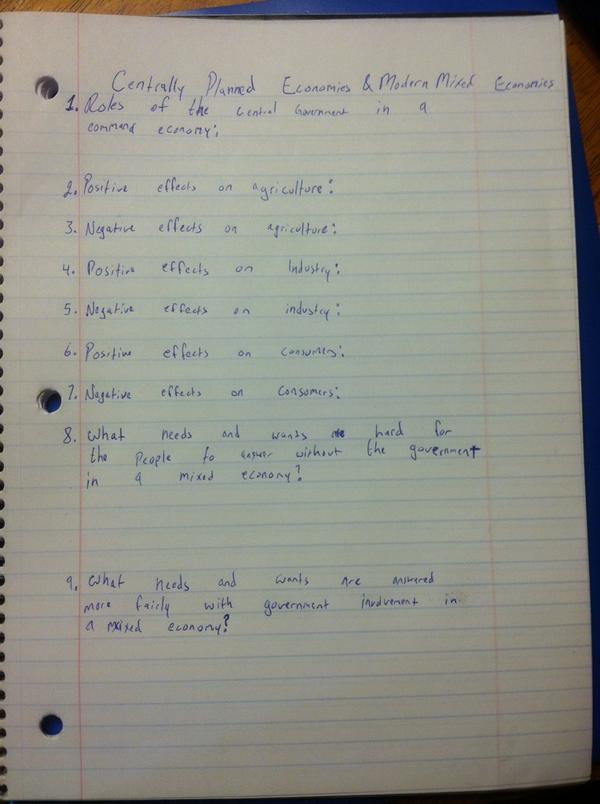 Centrally Planned Economies & Modern Mixed Economies
1. Roles of the Central Government in a
command economy:
2. Positive effects on agriculture:
3. Negative effects on agriculture:
4. Positive effects on Industry:
5. Negative effects on industry:
6. Positive effects on consumers:
7. Nagative effects on Consomers:
8. What needs and wants are hard for
the People to answer without the government
in a mixed economy?
9. What needs and wants are answered
more fairly with government involvement in
a mixed economy?